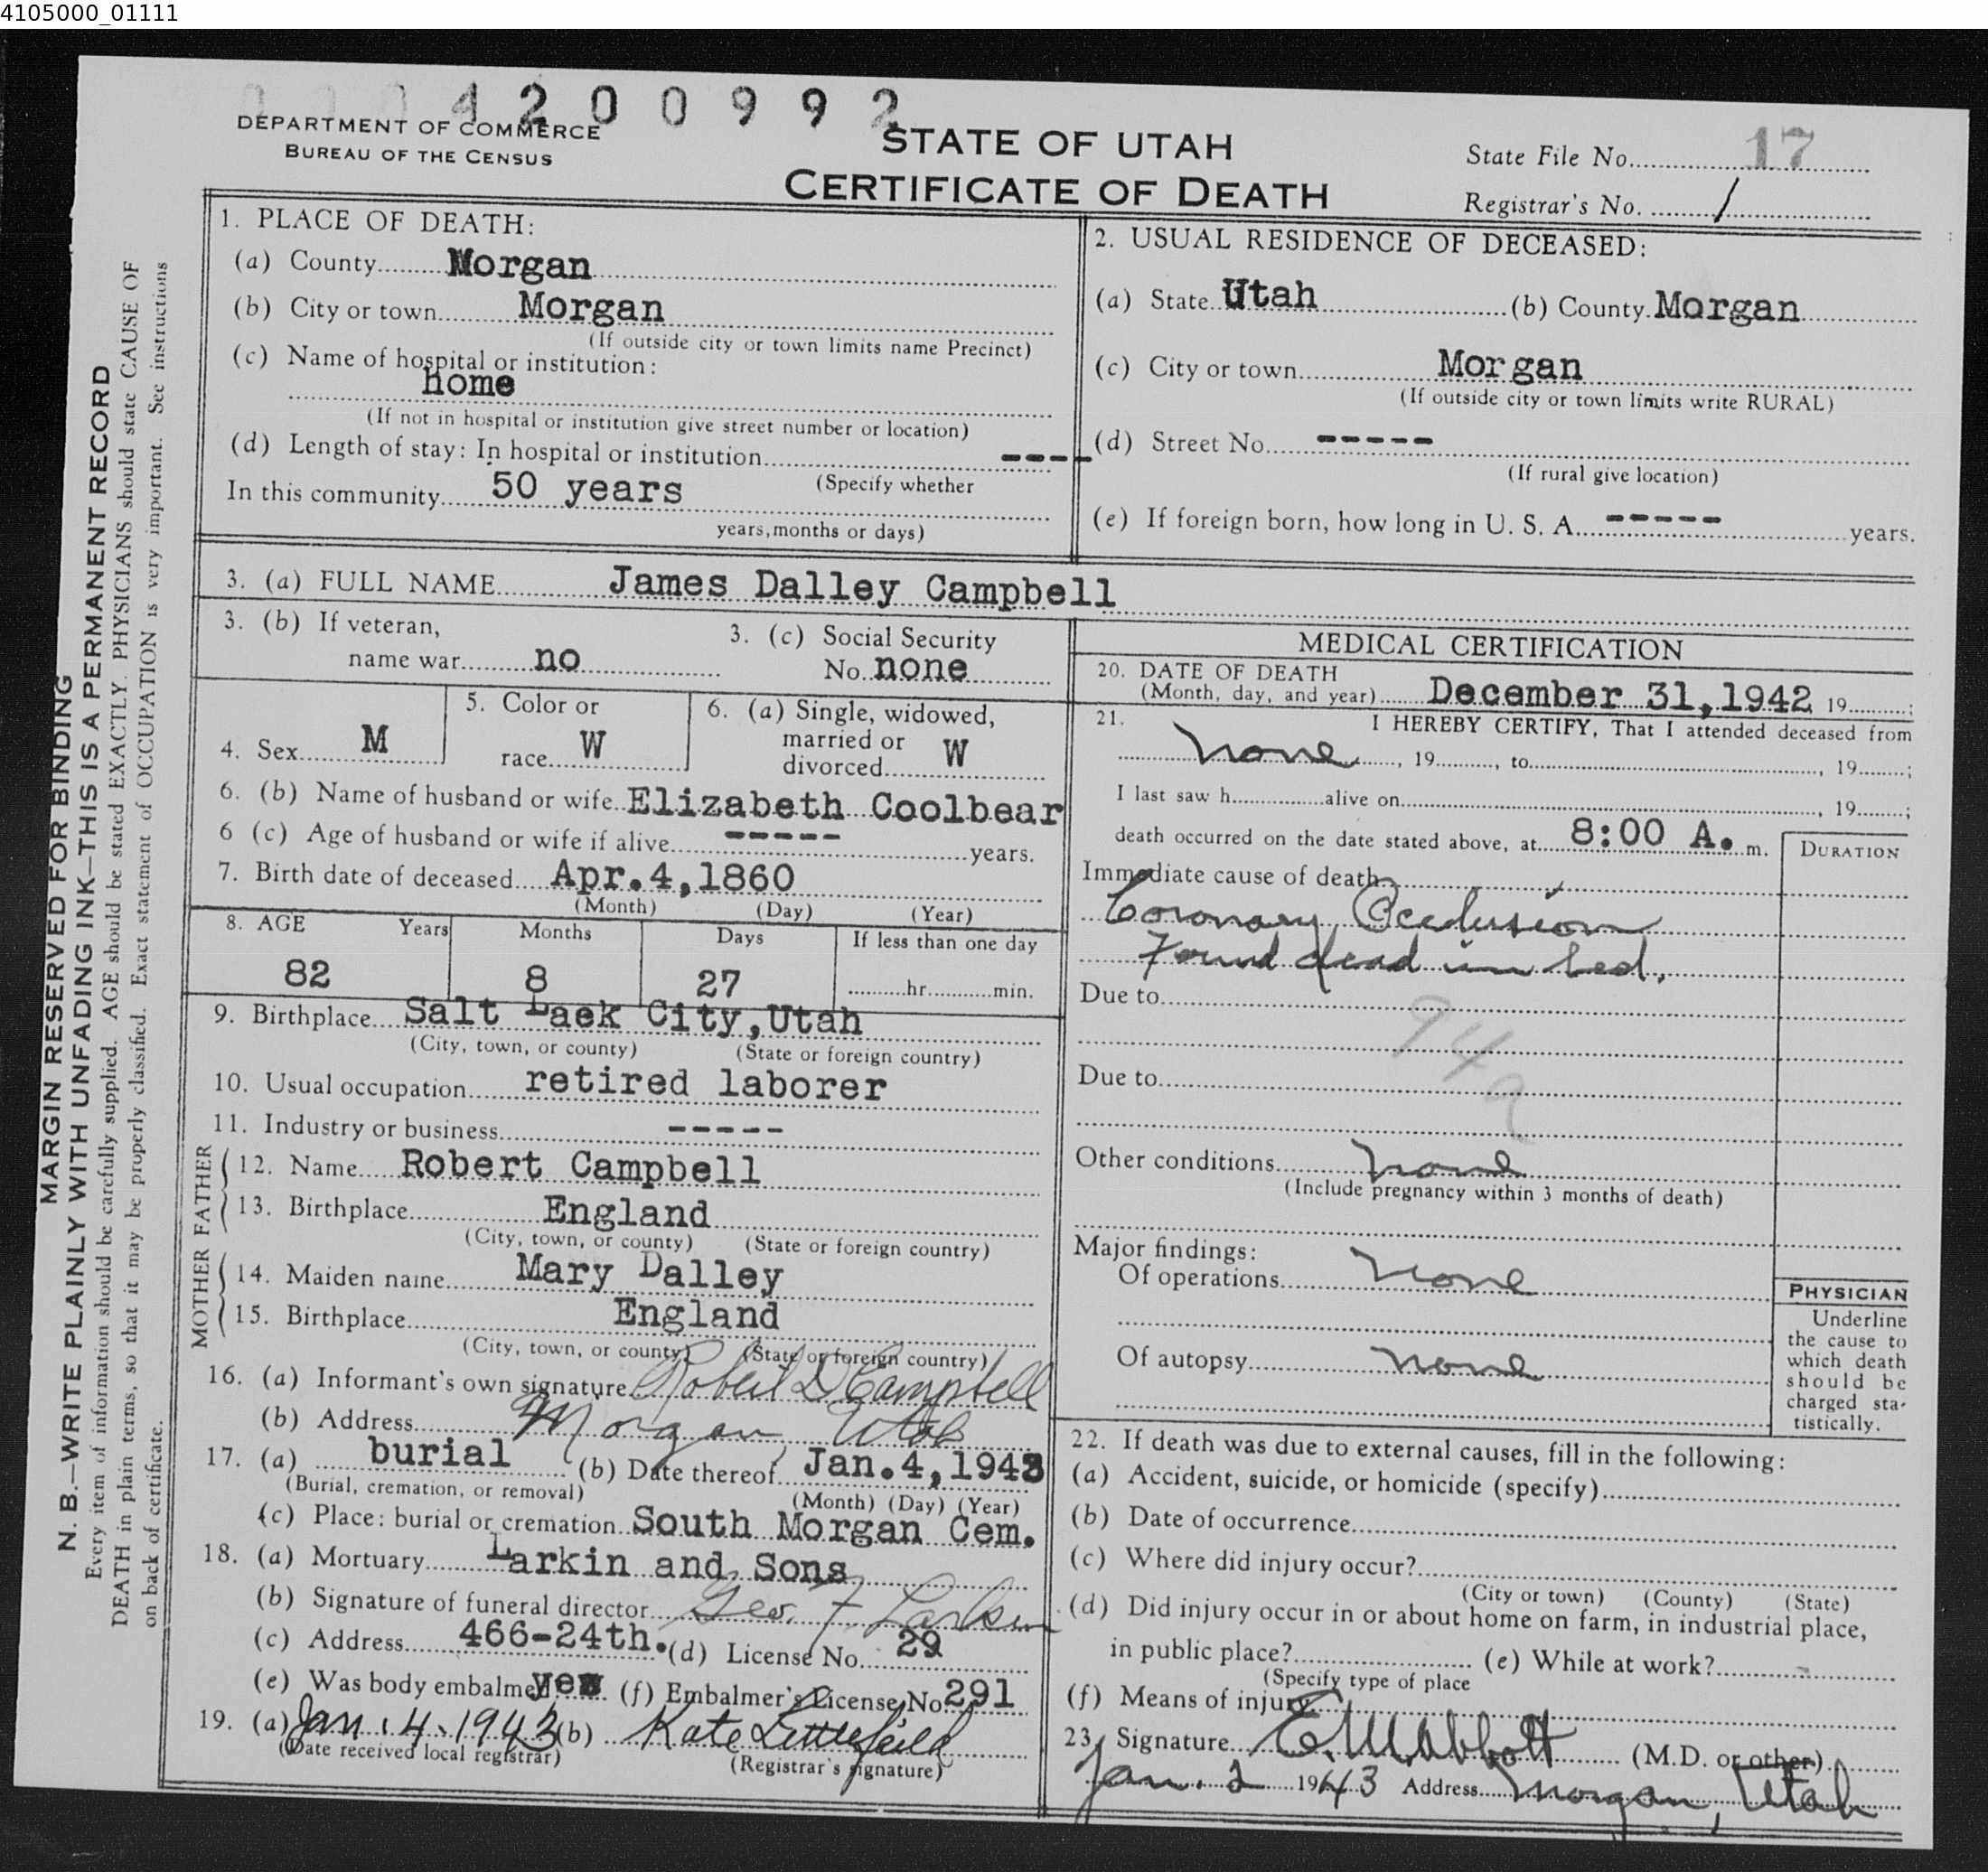 4105000_01111
4200992
DEPARTMENT OF COMMERCE
BUREAU OF THE CENSUS
STATE OF UTAH
CERTIFICATE OF DEATH
State File No. 17
Registrar's No. 1
MARGIN RESERVED FOR BINDING
N. B.—WRITE PLAINLY WITH UNFADING INK—THIS IS A PERMANENT RECORD
Every item of information should be carefully supplied. AGE should be stated EXACTLY. PHYSICIANS should state CAUSE OF
DEATH in plain terms, so that it may be properly classified. Exact statement of OCCUPATION is very important. See instructions
on back of certificate.
1. PLACE OF DEATH:
(a) County Morgan
(b) City or town Morgan
(If outside city or town limits name Precinct)
(c) Name of hospital or institution:
home
(If not in hospital or institution give street number or location)
(d) Length of stay: In hospital or institution ----
(Specify whether
In this community 50 years
years, months or days)
2. USUAL RESIDENCE OF DECEASED:
(a) State Utah (b) County Morgan
(c) City or town Morgan
(If outside city or town limits write RURAL)
(d) Street No. -----
(If rural give location)
(e) If foreign born, how long in U. S. A. ----- years.
3. (a) FULL NAME James Dalley Campbell
3. (b) If veteran,
name war no
3. (c) Social Security
No. none
4. Sex M
5. Color or
race W
6. (a) Single, widowed,
married or
divorced W
6. (b) Name of husband or wife Elizabeth Coolbear
6 (c) Age of husband or wife if alive ----- years.
7. Birth date of deceased Apr.4,1860
(Month) (Day) (Year)
8. AGE Years Months Days If less than one day
82 8 27 hr. min.
9. Birthplace Salt Laek City,Utah
(City, town, or county) (State or foreign country)
10. Usual occupation retired laborer
11. Industry or business -----
FATHER
12. Name Robert Campbell
13. Birthplace England
(City, town, or county) (State or foreign country)
MOTHER
14. Maiden name Mary Dalley
15. Birthplace England
(City, town, or county) (State or foreign country)
16. (a) Informant's own signature Robert D Campbell
(b) Address Morgan, Utah
17. (a) burial (b) Date thereof Jan.4,1943
(Burial, cremation, or removal) (Month) (Day) (Year)
(c) Place: burial or cremation South Morgan Cem.
18. (a) Mortuary Larkin and Sons
(b) Signature of funeral director Geo. F. Larkin
(c) Address 466-24th. (d) License No. 29
(e) Was body embalmed yes (f) Embalmer's License No 291
19. (a) Jan. 4. 1943 (b) Kate Littlefield
(Date received local registrar) (Registrar's signature)
MEDICAL CERTIFICATION
20. DATE OF DEATH
(Month, day, and year) December 31,1942 19 ;
21. I HEREBY CERTIFY, That I attended deceased from
none, 19 , to , 19 ;
I last saw h alive on , 19 ;
death occurred on the date stated above, at 8:00 A. m.
DURATION
Immediate cause of death
Coronary Occlusion
Found dead in bed.
Due to
94a
Due to
Other conditions none
(Include pregnancy within 3 months of death)
Major findings:
Of operations none
Of autopsy none
PHYSICIAN
Underline
the cause to
which death
should be
charged sta-
tistically.
22. If death was due to external causes, fill in the following:
(a) Accident, suicide, or homicide (specify)
(b) Date of occurrence
(c) Where did injury occur?
(City or town) (County) (State)
(d) Did injury occur in or about home on farm, in industrial place,
in public place? (e) While at work?
(Specify type of place
(f) Means of injury
23. Signature E. W. Abbott (M.D. or other)
Jan. 2 1943 Address Morgan, Utah